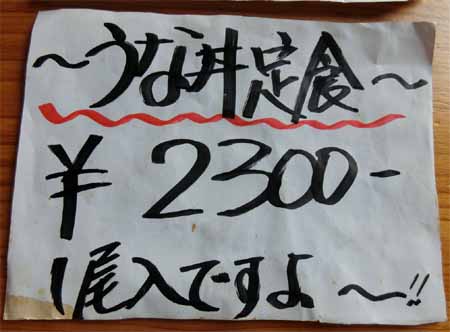 ～うな丼定食～
¥2300-
1尾入ですよ～!!